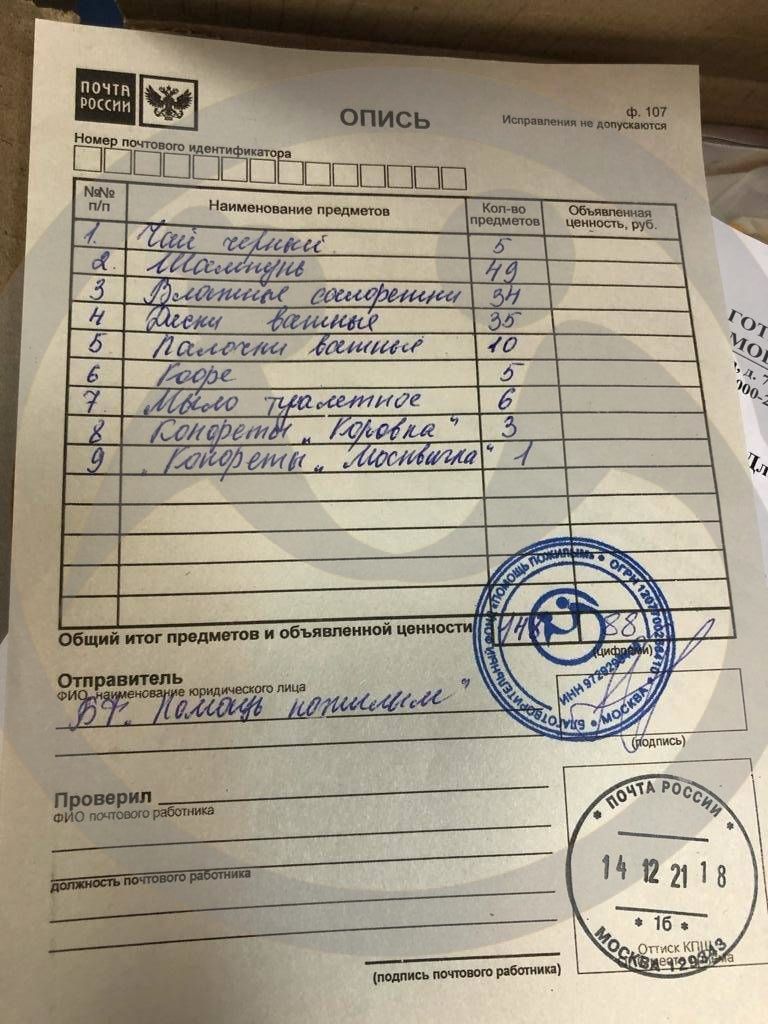 ПОЧТА
РОССИИ
ОПИСЬ
ф. 107
Исправления не допускаются
Номер почтового идентификатора
№№ п/п Наименование предметов Кол-во предметов Объявленная ценность, руб.
1. Чай черный 5
2. Шампунь 49
3 Влажные салфетки 34
4 Диски ватные 35
5 Палочки ватные 10
6 Кофе 5
7 Мыло туалетное 6
8 Конфеты „Коровка" 3
9 „Конфеты „Москвичка" 1
Общий итог предметов и объявленной ценности 148
(цифрами)
Отправитель
ФИО, наименование юридического лица
БФ „Помощь пожилым"
БЛАГОТВОРИТЕЛЬНЫЙ ФОНД «ПОМОЩЬ ПОЖИЛЫМ» * ОГРН
ИНН
* МОСКВА *
(подпись)
Проверил
ФИО почтового работника
должность почтового работника
(подпись почтового работника)
* ПОЧТА РОССИИ *
14 12 21 18
* 16 *
МОСКВА 129343
Оттиск КПШ